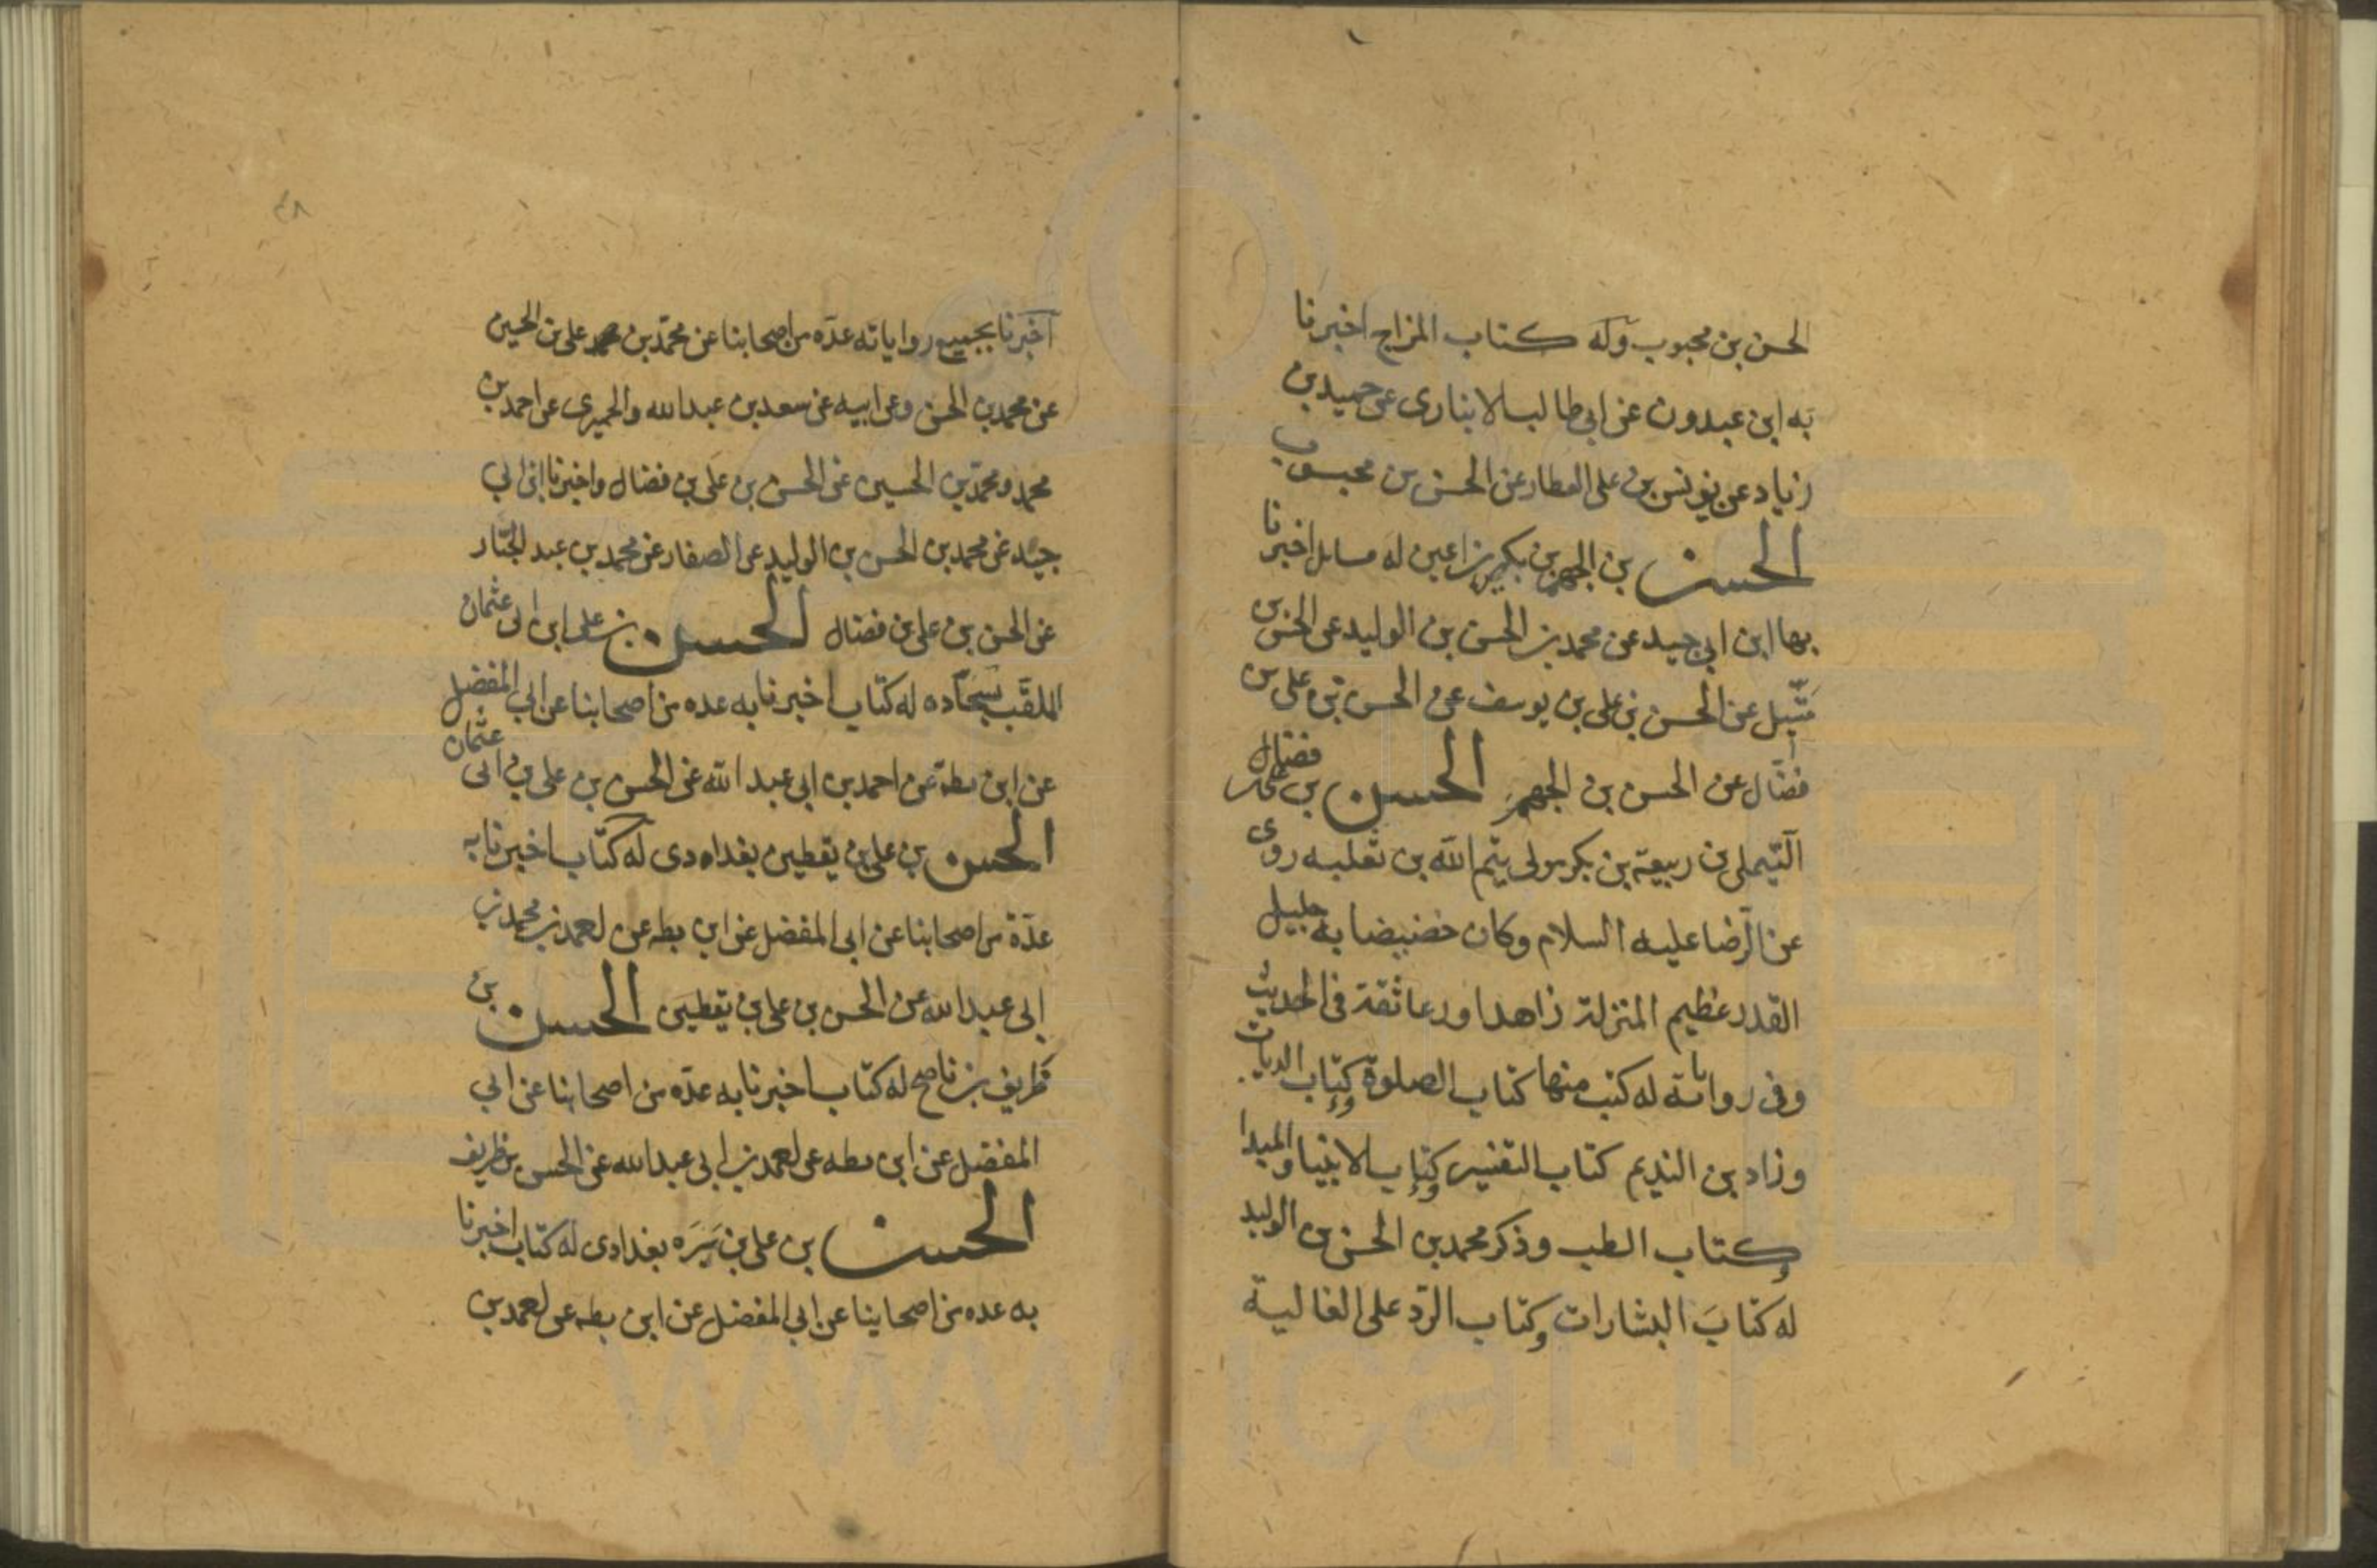 الحسن بن محبوب وله كتاب المزاج اخبرنا
به ابن عبدون عن ابى طالب الانبارى عن حميد بن
زياد عن يونس بن على العطار عن الحسن بن محبوب
الحسن بن الجهم بن بكير بن اعين له مسايل اخبرنا
بها ابن ابى جيد عن محمد بن الحسن بن الوليد عن الحسن بن
متّيل عن الحسن بن على بن يوسف عن الحسن بن على بن
فضّال عن الحسن بن الجهم الحسن بن على فضال
التّيملى بن ربيعة بن بكر مولى تيم الله بن ثعلبه روى
عن الرّضا عليه السلام وكان خضيضا به جليل
القدر عظيم المنزلة زاهدا ورعا ثقة فى الحديث
وفى رواياته له كتب منها كتاب الصلوة وكتاب الديات
وزاد بن النديم كتاب التفسير وكتاب الابتيا والمبدا
وكتاب الطب وذكر محمد بن الحسن بن الوليد
له كتاب البشارات وكتاب الرّد على الغالية
٤٨
اخبرنا بجميع رواياته عدّه من اصحابنا عن محمّد بن على بن الحسين
عن محمد بن الحسن وعن ابيه عن سعد بن عبدالله والحميرى عن احمد بن
محمد ومحمّد بن الحسين عن الحسن بن على بن فضال واخبرنا ابن ابى
جيّد عن محمد بن الحسن بن الوليد عن الصفار عن محمد بن عبد الجبّار
عن الحسن بن على بن فضال الحسن بن على ابن ابى عثمان
الملقّب بسجّاده له كتاب اخبرنا به عده من اصحابنا عن ابى المفضل
عن ابن بطة عن احمد بن ابى عبد الله عن الحسن بن على بن ابى عثمان
الحسن بن على بن يقطين بغدادى له كتاب اخبرنا به
عدّة من اصحابنا عن ابى المفضل عن ابن بطه عن احمد بن محمد بن
ابى عبد الله عن الحسن بن على بن يقطين الحسن بن
ظريف بن ناصح له كتاب اخبرنا به عدّه من اصحابنا عن ابى
المفضل عن ابن بطه عن احمد بن ابى عبدالله عن الحسن بن ظريف
الحسن بن على بن سَبَرَه بغدادى له كتاب اخبرنا
به عده من اصحابنا عن ابى المفضل عن ابن بطه عن احمد بن
www.ical.ir